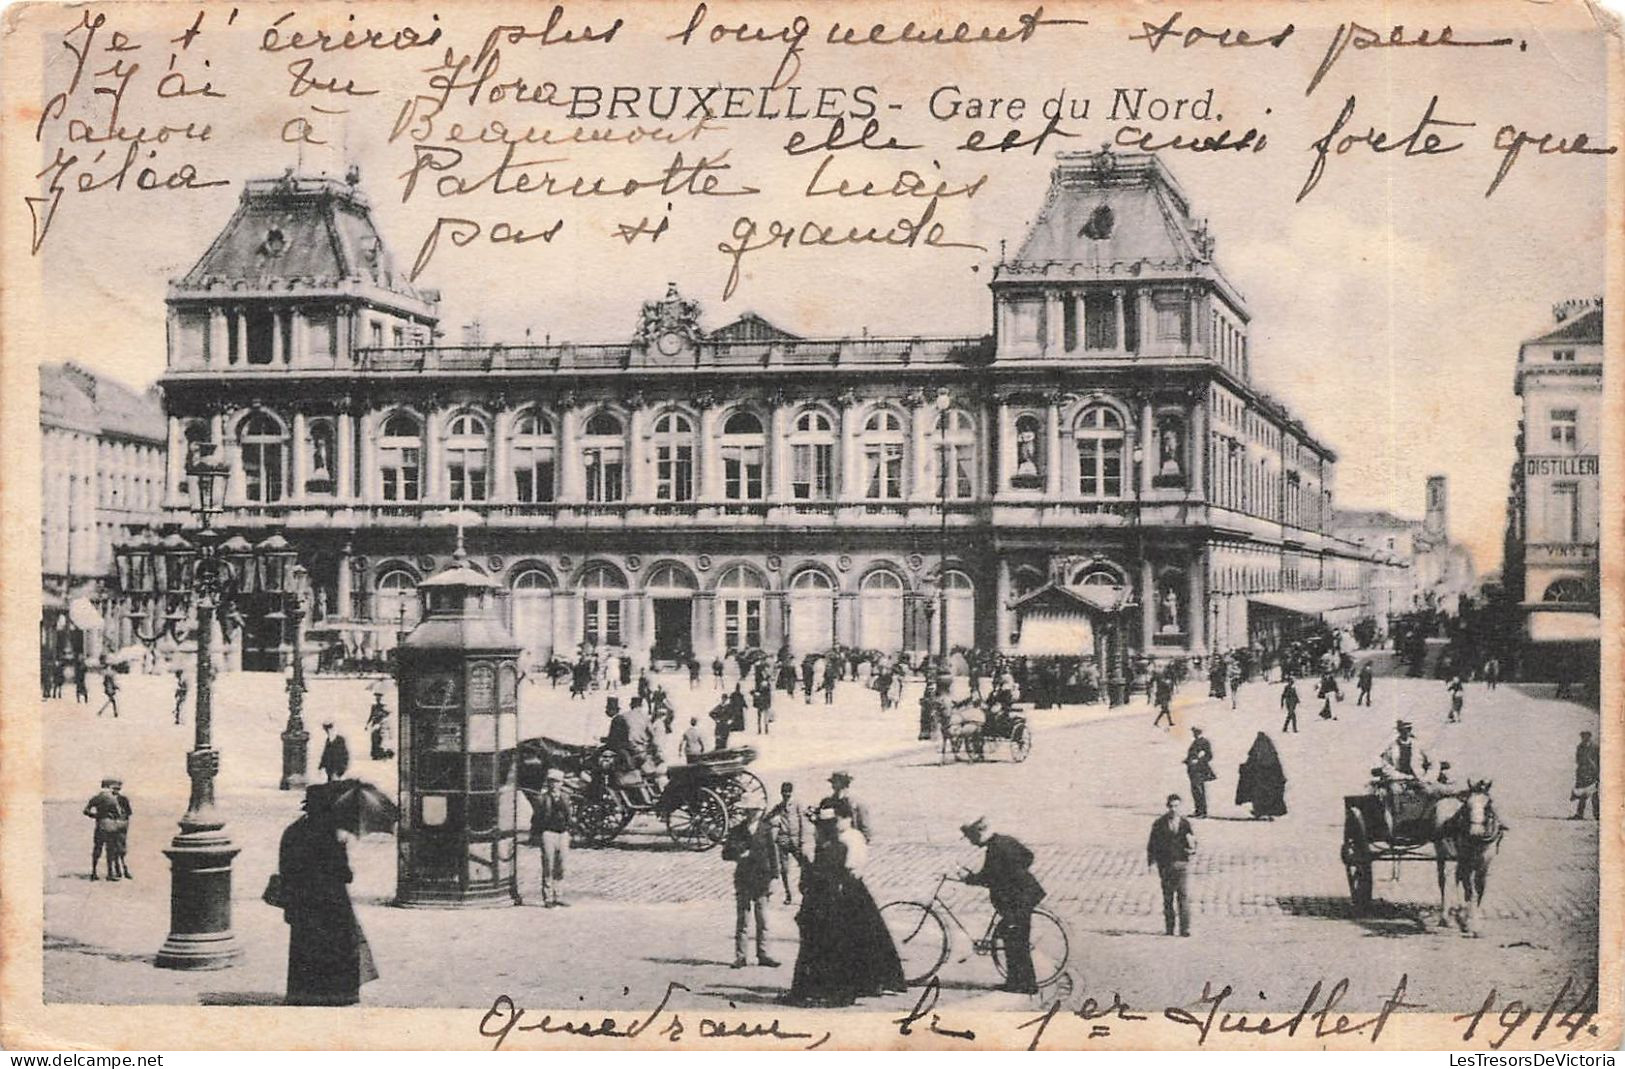 Je t'écrirai plus longuement sous peu.
J'ai vu Flora
BRUXELLES - Gare du Nord.
Panou à Beaumont, elle est aussi forte que
Zélia Paternotte mais
pas si grande.
DISTILLERI
VINS &
Quiévrain, le 1er Juillet 1914.
LesTresorsDeVictoria